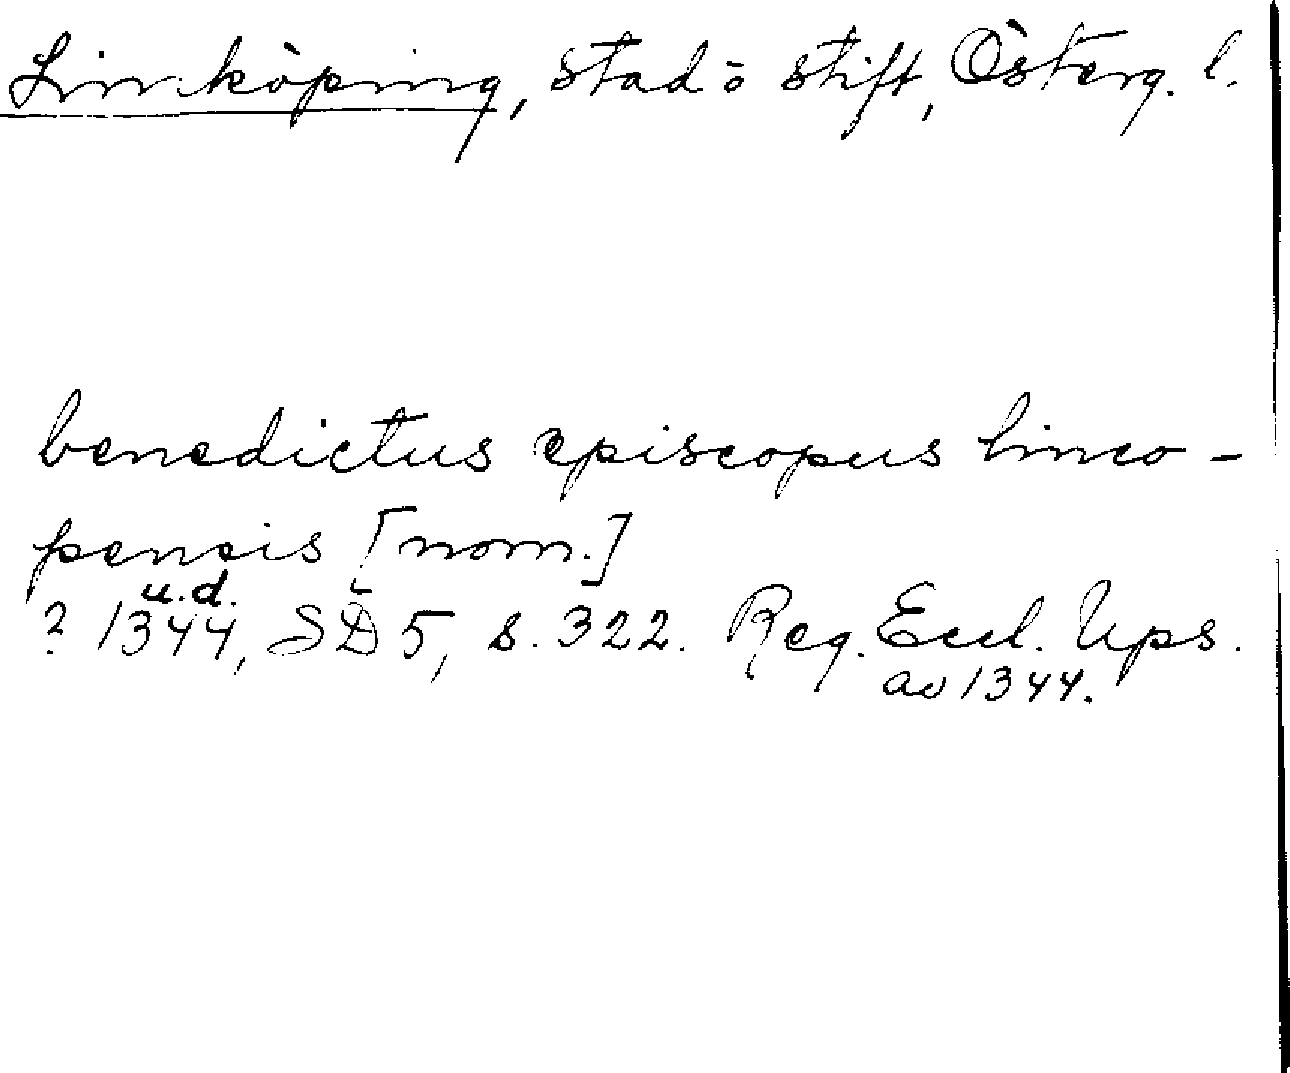 Linköping, stad o stift, Österg. l.
benedictus episcopus linco-
pensis [nom.]
u.d.
? 1344, SD 5, s. 322. Reg. Eccl. Ups.
av 1344.